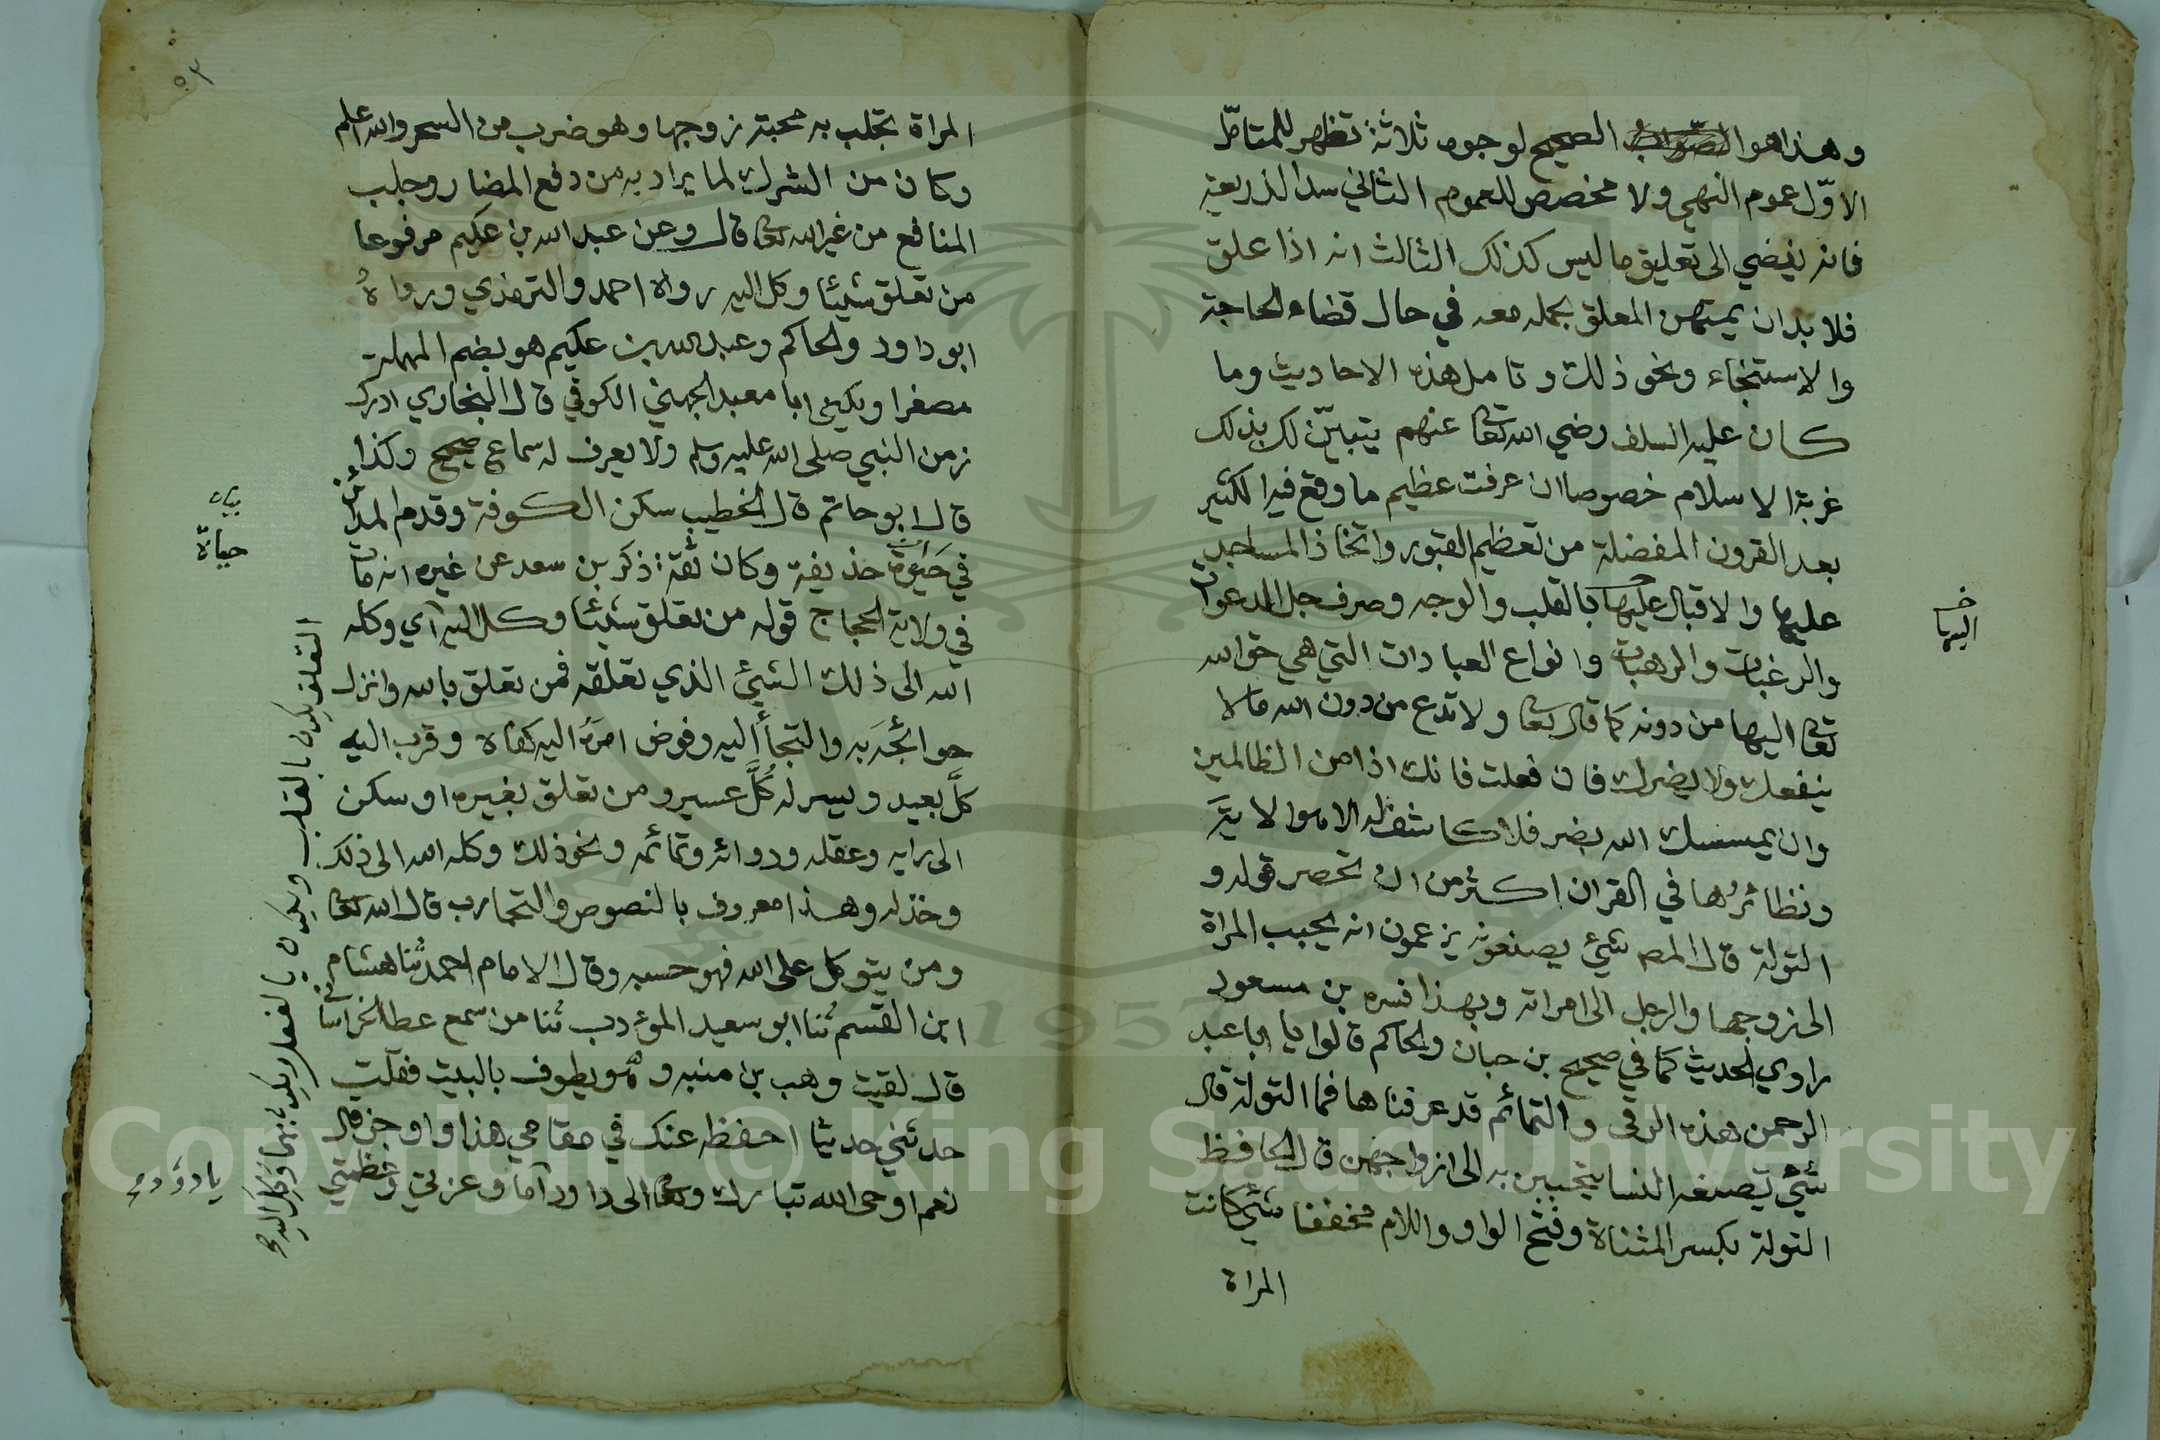 وهذا هو الصحيح لوجوه ثلاثة تظهر للمتامل
الاوّل عموم النهي ولا مخصص للعموم الثاني سد الذريعة
فانه يفضي الى تعليق ما ليس كذلك الثالث انه اذا علق
فلا بد ان يمتهن المعلق بحمله معه في حال قضاء الحاجة
والاستنجاء ونحو ذلك وتامل هذه الاحاديث وما
كان عليه السلف رضي الله تعا عنهم يتبيّن لك بذلك
غربة الاسلام خصوصا ان عرفت عظيم ما وقع فيه الكثير
بعد القرون المفضلة من تعظيم القبور واتخاذ المساجد
عليها والاقبال عليها بالقلب والوجه وصرف جل الدعوات
والرغبات والرهبات وانواع العبادات التي هي حق الله
تعا اليها من دونه كما قال تعا ولا تدع من دون الله ما لا
ينفعك ولا يضرك فان فعلت فانك اذا من الظالمين
وان يمسسك الله بضر فلا كاشف له الا هو الاية
ونظائرُها في القران اكثر من ان تحصر قوله و
التولة قال المص شيء يصنعونه يزعمون انه يحبب المراة
الى زوجها والرجل الى امراته وبهذا فسره بن مسعود
راوي الحديث كما في صحيح بن حبان والحاكم قالوا يا ابا عبد
الرحمن هذه الرقى والتمائم قد عرفناها فما التولة قال
شيء تصنعه النسا يتحببن به الى ازواجهن قال الحافظ
التولة بكسر المثناة وفتح الواو واللام مخففا شيء كانت
المراة
اليها
٥٣
المراة تجلب به محبة زوجها وهو ضرب من السحر والله اعلم
وكان من الشرك لما يراد به من دفع المضار وجلب
المنافع من غير الله تعا قال وعن عبد الله بن عكيم مرفوعا
من تعلق شيئا وكل اليه رواه احمد والترمذي ورواهُ
ابو داود والحاكم وعبد الله بن عكيم هو بضم المهملة
مصغرا ويكنى ابا معبد الجهني الكوفي قال البخاري ادرك
زمن النبي صلى الله عليه وسلم ولا يعرف له سماع صحيح وكذا
قال ابو حاتم قال الخطيب سكن الكوفة وقدم المدائن
في حَيَوة حذيفة وكان ثقة ذكر بن سعد عن غيره انه مات
في ولاية الحجاج قوله من تعلق شيئا وكل اليه اي وكله
الله الى ذلك الشيء الذي تعلقه فمن تعلق بالله وانزل
حوائجه به والتجأ اليه وفوض امرَهُ اليه كفاه وقرب اليه
كلَّ بعيد ويسر له كُلَّ عسير ومن تعلق بغيره او سكن
الى رايه وعقله ودوائه وتمائمه ونحو ذلك وكله الله الى ذلك
وخذله وهذا معروف بالنصوص والتجارب قال الله تعا
ومن يتوكل على الله فهو حسبه وقال الامام احمد ثنا هشام
ابن القسم ثنا ابو سعيد المؤدب ثنا من سمع عطا الخراساني
قال لقيت وهب بن منبه وهو يطوف بالبيت فقلت
حدثني حديثا احفظه عنك في مقامي هذا واوجز قال
نعم اوحى الله تبارك وتعا الى داود آما وعزتي وعظمتي
بيان
حياة
التعلق يكون بالقلب ويكون بالفعل ويكون بهما وكل اليه